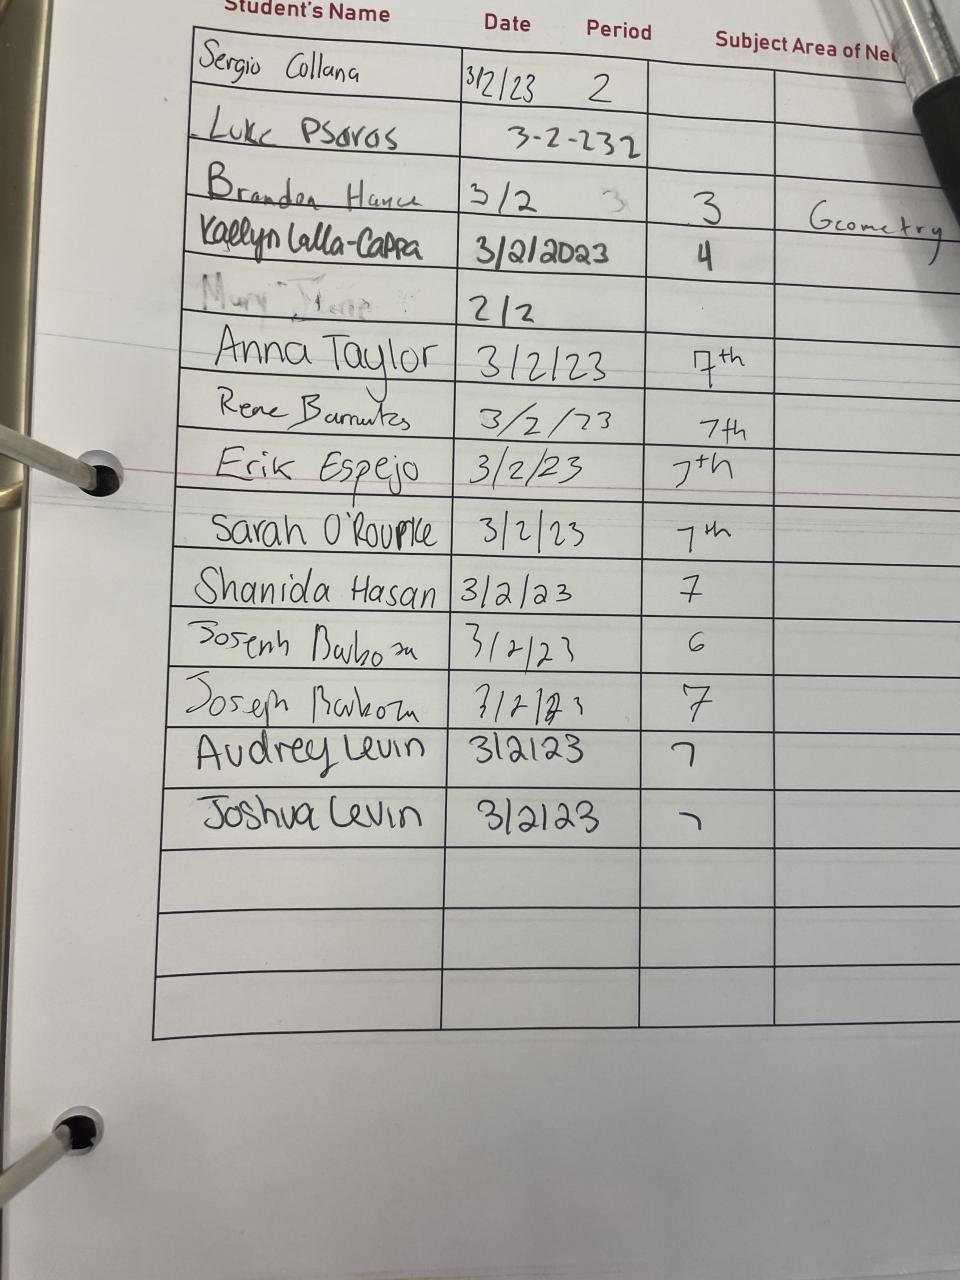 Student's Name Date Period Subject Area of
Sergio Collana 3/2/23 2
Luke Psoros 3-2-23 2
Brandon 3/2 3 3 Geometry
Kaelyn Lalla-Cappa 3/2/2023 4
Mary 2/2
Anna Taylor 3/2/23 7th
Rene 3/2/23 7th
Erik Espejo 3/2/23 7th
Sarah O'Rourke 3/2/23 7th
Shanida Hasan 3/2/23 7
Joseph Barboza 3/2/23 6
Joseph Barboza 3/2/23 7
Audrey Levin 3/2/23 7
Joshua Levin 3/2/23 7